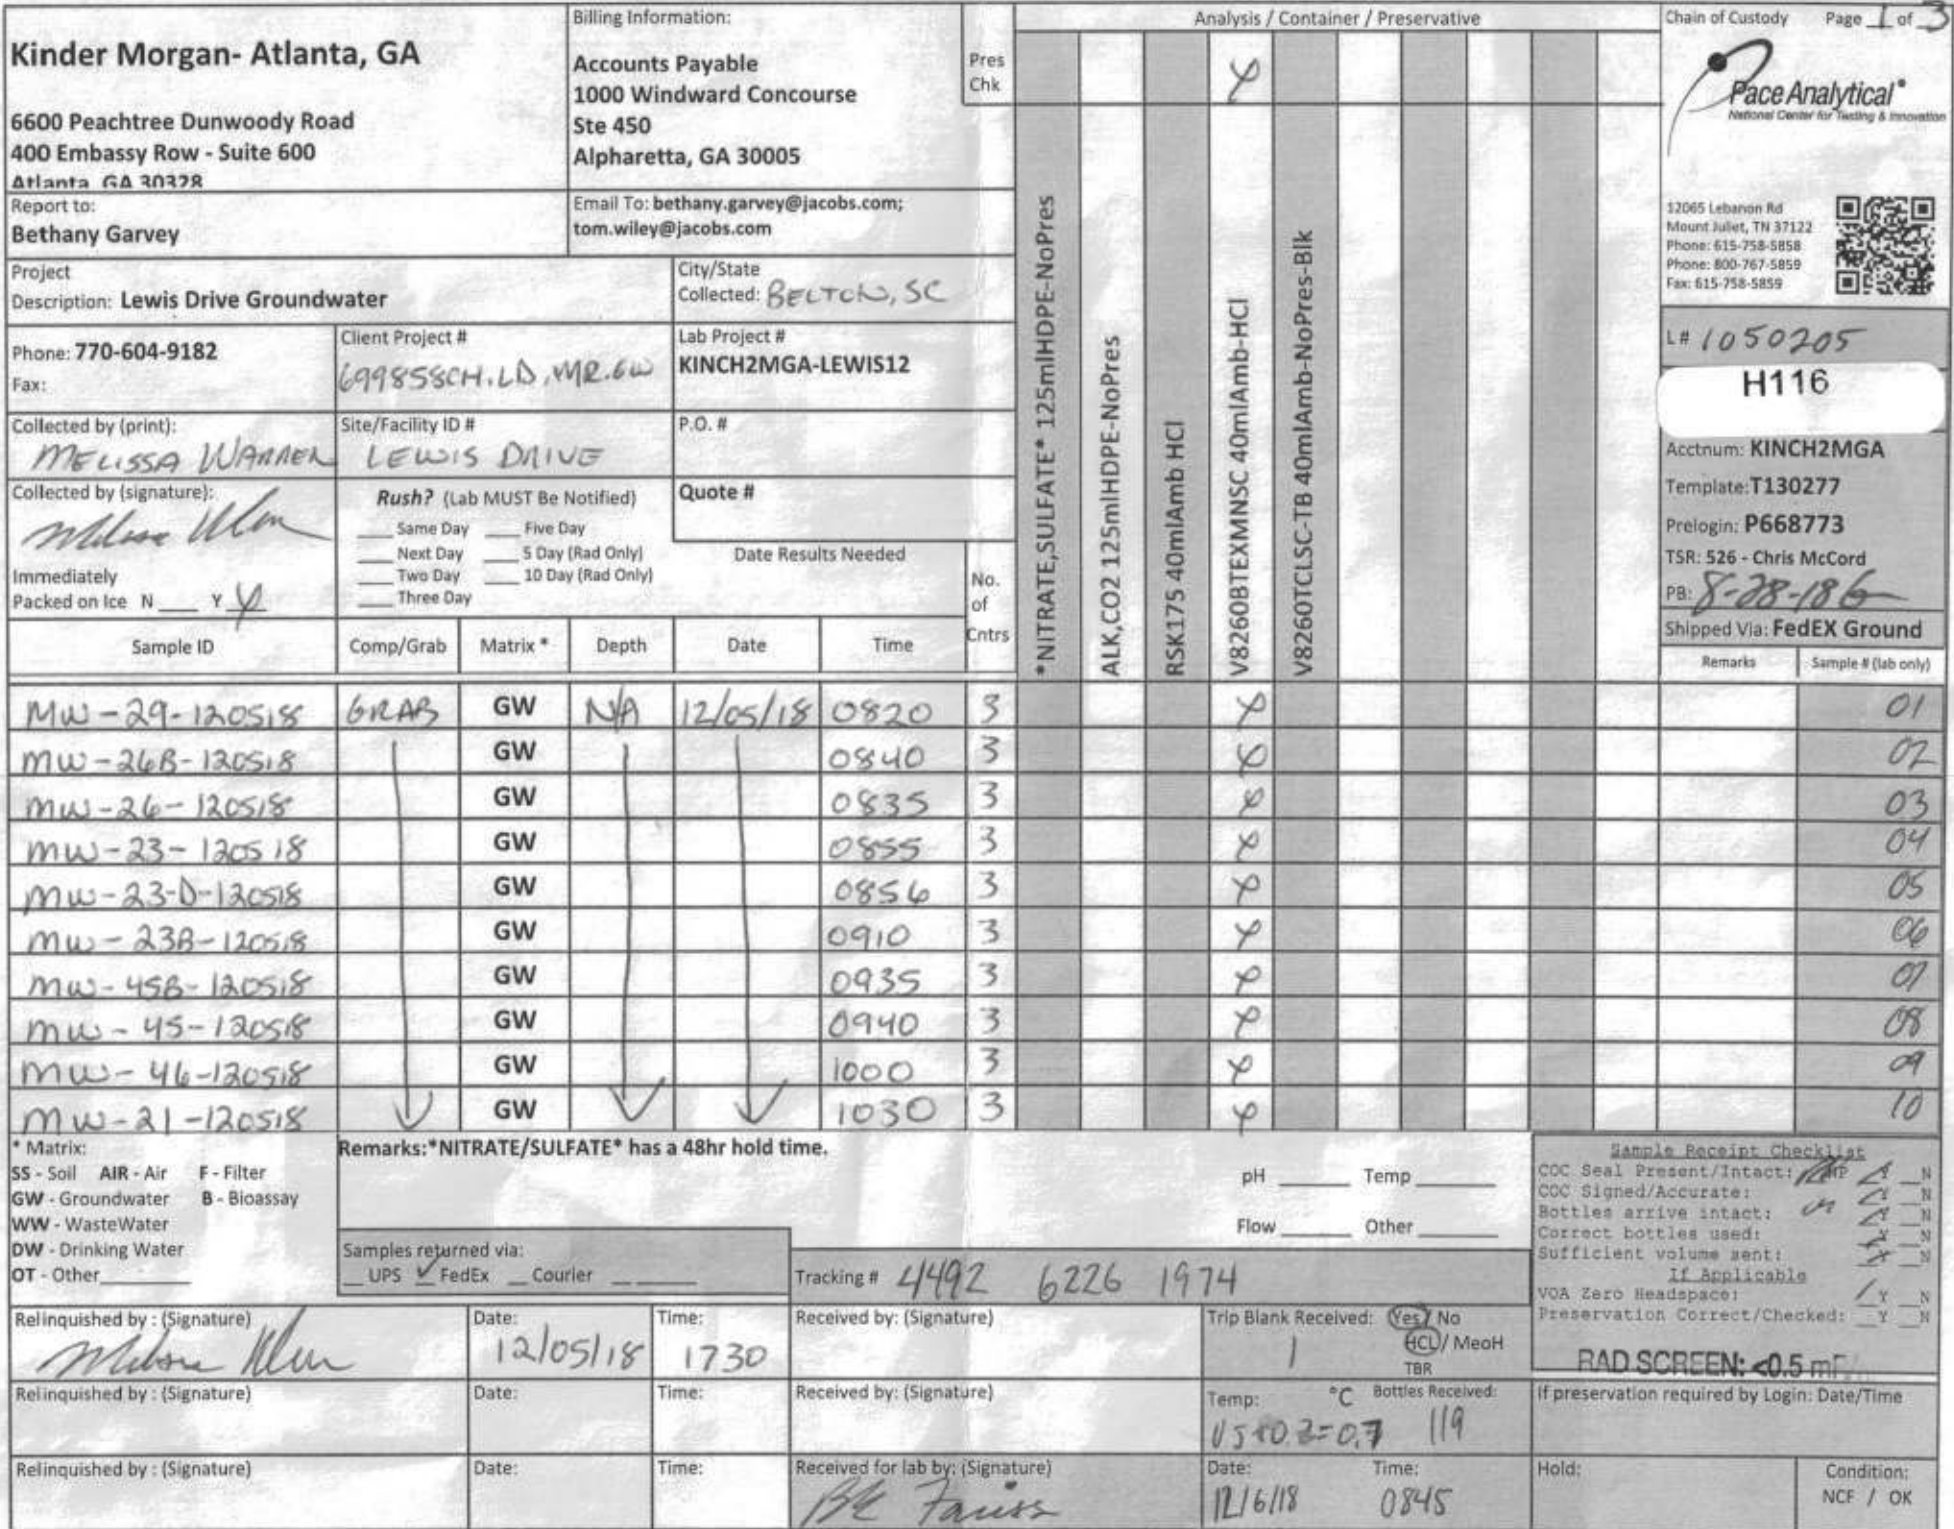 Kinder Morgan- Atlanta, GA
6600 Peachtree Dunwoody Road
400 Embassy Row - Suite 600
Atlanta GA 30328
Billing Information:
Accounts Payable
1000 Windward Concourse
Ste 450
Alpharetta, GA 30005
Pres
Chk
Analysis / Container / Preservative
Chain of Custody Page 1 of 3
Pace Analytical®
National Center for Testing & Innovation
12065 Lebanon Rd
Mount Juliet, TN 37122
Phone: 615-758-5858
Phone: 800-767-5859
Fax: 615-758-5859
Report to:
Bethany Garvey
Email To: bethany.garvey@jacobs.com;
tom.wiley@jacobs.com
Project
Description: Lewis Drive Groundwater
City/State
Collected: BELTON, SC
Phone: 770-604-9182
Fax:
Client Project #
699858CH.LD.MR.GW
Lab Project #
KINCH2MGA-LEWIS12
Collected by (print):
MELISSA WARREN
Site/Facility ID #
LEWIS DRIVE
P.O. #
Collected by (signature):
Rush? (Lab MUST Be Notified)
___ Same Day ___ Five Day
___ Next Day ___ 5 Day (Rad Only)
___ Two Day ___ 10 Day (Rad Only)
___ Three Day
Quote #
Date Results Needed
Immediately
Packed on Ice N ___ Y ___
No.
of
Cntrs
*NITRATE,SULFATE* 125mlHDPE-NoPres
ALK,CO2 125mlHDPE-NoPres
RSK175 40mlAmb HCl
V8260BTEXMNSC 40mlAmb-HCl
V8260TCLSC-TB 40mlAmb-NoPres-Blk
L# 1050205
H116
Acctnum: KINCH2MGA
Template: T130277
Prelogin: P668773
TSR: 526 - Chris McCord
PB: 8-28-18
Shipped Via: FedEX Ground
Sample ID Comp/Grab Matrix * Depth Date Time Remarks Sample # (lab only)
MW-29-120518 GRAB GW N/A 12/05/18 0820 3 01
MW-26B-120518 GW 0840 3 02
MW-26-120518 GW 0835 3 03
MW-23-120518 GW 0855 3 04
MW-23-D-120518 GW 0856 3 05
MW-23B-120518 GW 0910 3 06
MW-45B-120518 GW 0935 3 07
MW-45-120518 GW 0940 3 08
MW-46-120518 GW 1000 3 09
MW-21-120518 GW 1030 3 10
* Matrix:
SS - Soil AIR - Air F - Filter
GW - Groundwater B - Bioassay
WW - WasteWater
DW - Drinking Water
OT - Other
Remarks:*NITRATE/SULFATE* has a 48hr hold time.
pH ___ Temp ___
Flow ___ Other ___
Samples returned via:
__ UPS ✓ FedEx __ Courier
Tracking # 4492 6226 1974
Sample Receipt Checklist
COC Seal Present/Intact: NP Y N
COC Signed/Accurate: Y N
Bottles arrive intact: Y N
Correct bottles used: Y N
Sufficient volume sent: Y N
If Applicable
VOA Zero Headspace: Y N
Preservation Correct/Checked: Y N
RAD SCREEN: <0.5
Relinquished by : (Signature)
Date: 12/05/18
Time: 1730
Received by: (Signature)
Trip Blank Received: Yes / No
1 HCL / MeoH
TBR
Relinquished by : (Signature)
Date:
Time:
Received by: (Signature)
Temp: °C Bottles Received:
119
If preservation required by Login: Date/Time
Relinquished by : (Signature)
Date:
Time:
Received for lab by: (Signature)
Date: 12/6/18
Time: 0845
Hold:
Condition:
NCF / OK